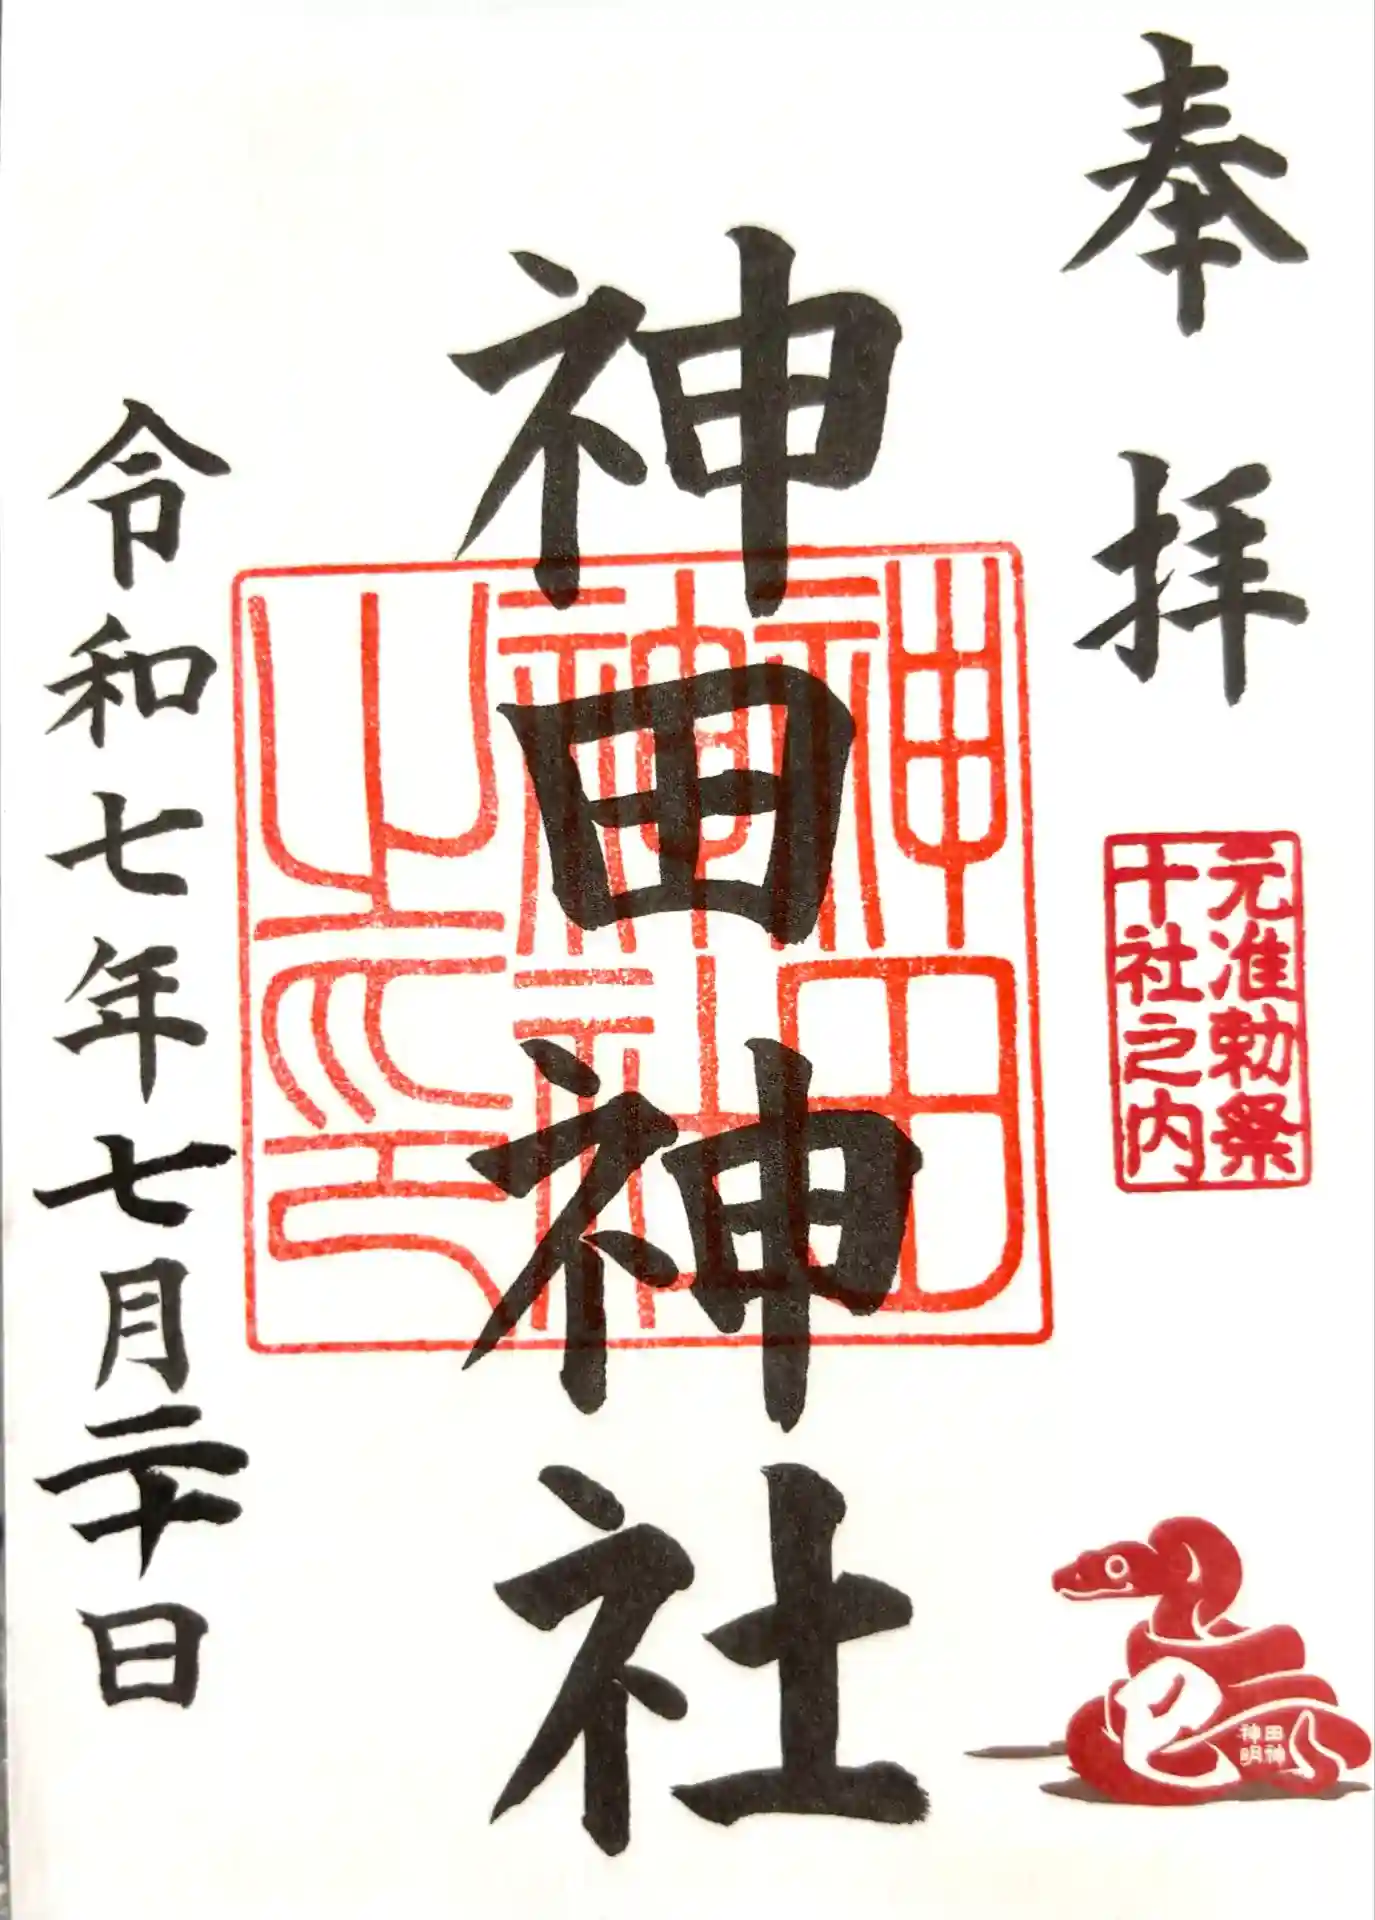 奉拝
元准勅祭
十社之内
巳
田神
神明
神田神社
神田
神社
之印
令和七年七月二十日